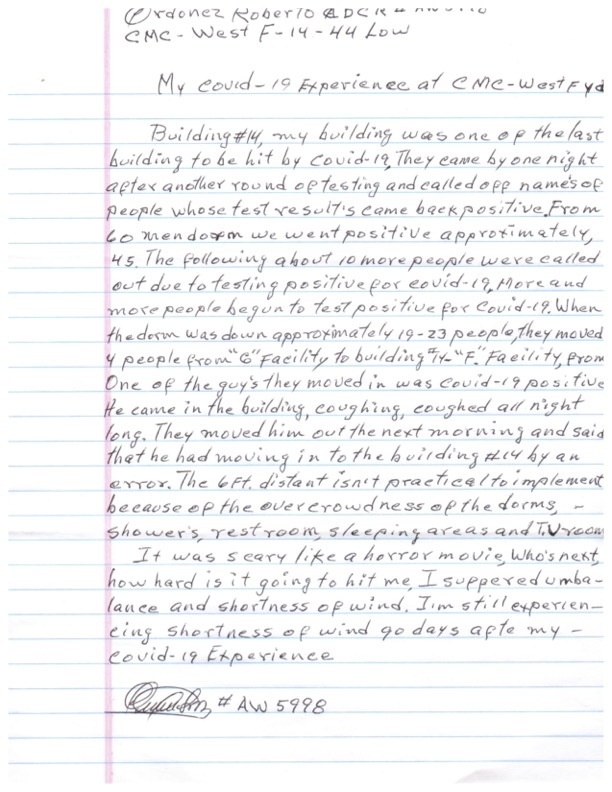 Ordonez Roberto CDCR # AW5998
CMC-West F-14-44 Low
My Covid-19 Experience at CMC-West F yd
Building #14, my building was one of the last
building to be hit by Covid-19, They came by one night
after another round of testing and called off name's of
people whose test result's came back positive. From
60 men dorm we went positive approximately,
45. The following about 10 more people were called
out due to testing positive for covid-19, More and
more people begun to test positive for Covid-19. When
the dorm was down approximately 19-23 people, they moved
4 people from "G" Facility to building #14-"F." Facility, from
One of the guy's they moved in was Covid-19 positive
He came in the building, coughing, coughed all night
long. They moved him out the next morning and said
that he had moving in to the building #14 by an
error. The 6Ft. distant isn't practical to implement
because of the overcrowdness of the dorms, -
shower's, rest room, sleeping areas and T.V room
It was scary like a horror movie, Who's next,
how hard is it going to hit me, I suffered umba-
lance and shortness of wind, I'm still experien-
cing shortness of wind 90 days afte my -
Covid-19 Experience
# AW 5998